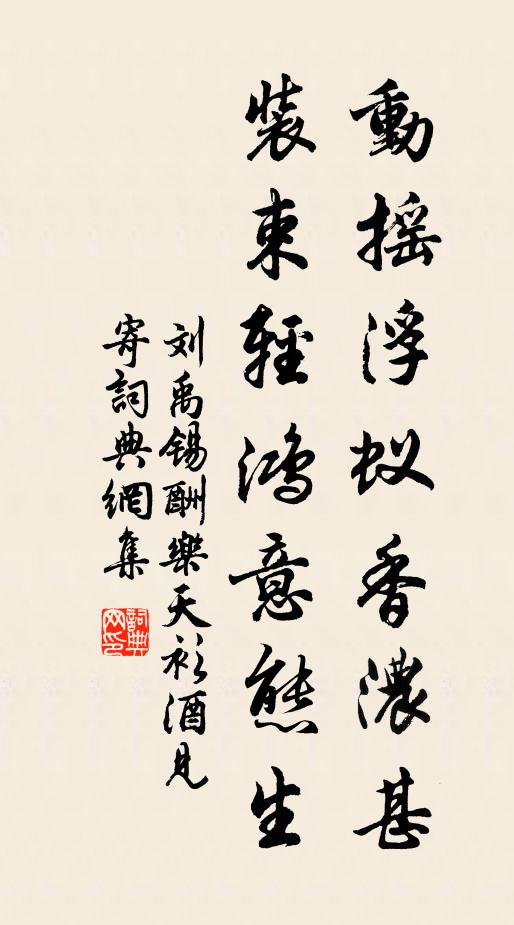 動摇浮蚁香濃甚
装束輕鴻意態生
刘禹锡酬樂天衫酒見
寄詞典網集
詞典网印